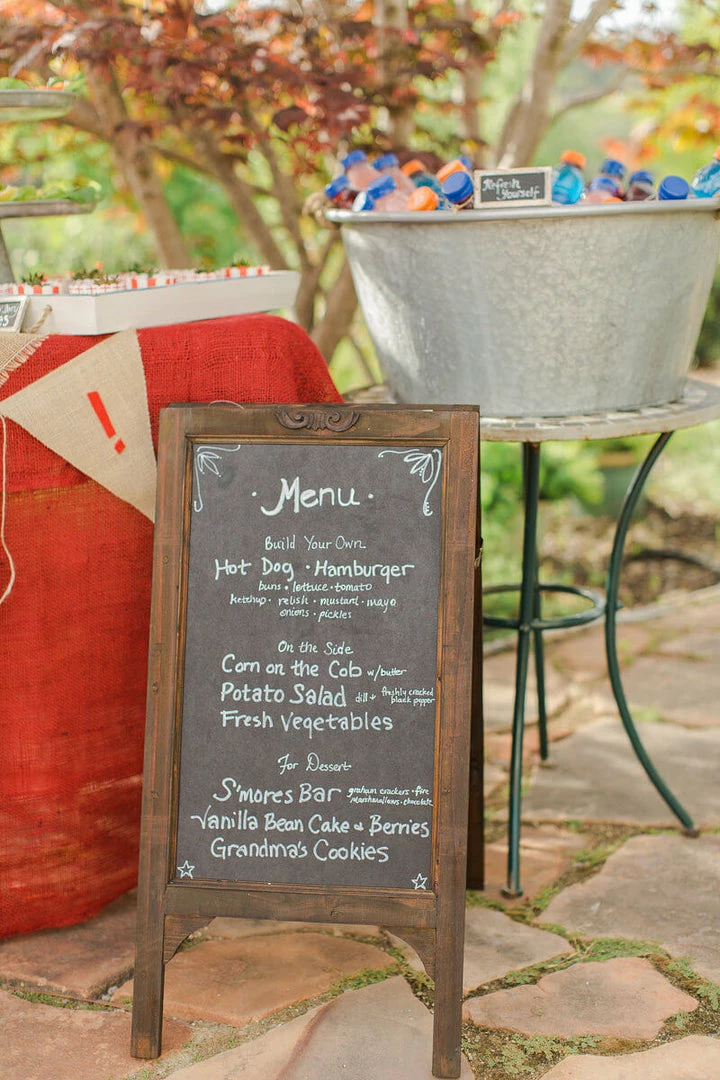 Refresh
Yourself
!
· Menu ·
Build Your Own
Hot Dog · Hamburger
buns · lettuce · tomato
ketchup · relish · mustard · mayo
onions · pickles
On the Side
Corn on the Cob w/butter
Potato Salad dill + freshly cracked
black pepper
Fresh Vegetables
For Dessert
S'mores Bar graham crackers · fire
marshmallows · chocolate
Vanilla Bean Cake & Berries
Grandma's Cookies